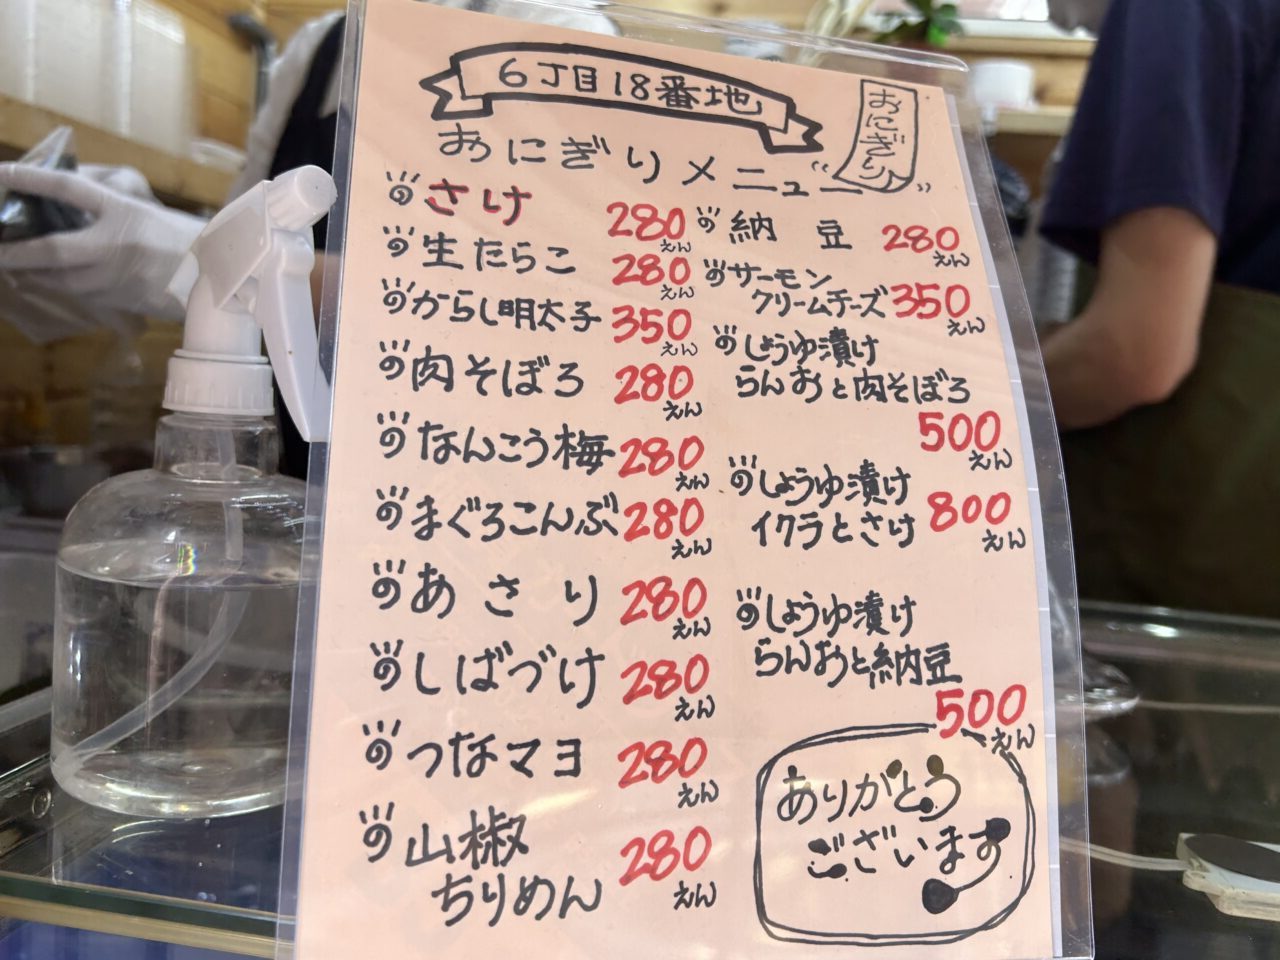 6丁目18番地
おにぎり
おにぎりメニュー
さけ 280えん
生たらこ 280えん
からし明太子 350えん
肉そぼろ 280えん
なんこう梅 280えん
まぐろこんぶ 280えん
あさり 280えん
しばづけ 280えん
つなマヨ 280えん
山椒
ちりめん 280えん
納豆 280えん
サーモン
クリームチーズ 350えん
しょうゆ漬け
らんおと肉そぼろ
500えん
しょうゆ漬け
イクラとさけ 800えん
しょうゆ漬け
らんおと納豆
500えん
ありがとう
ございます